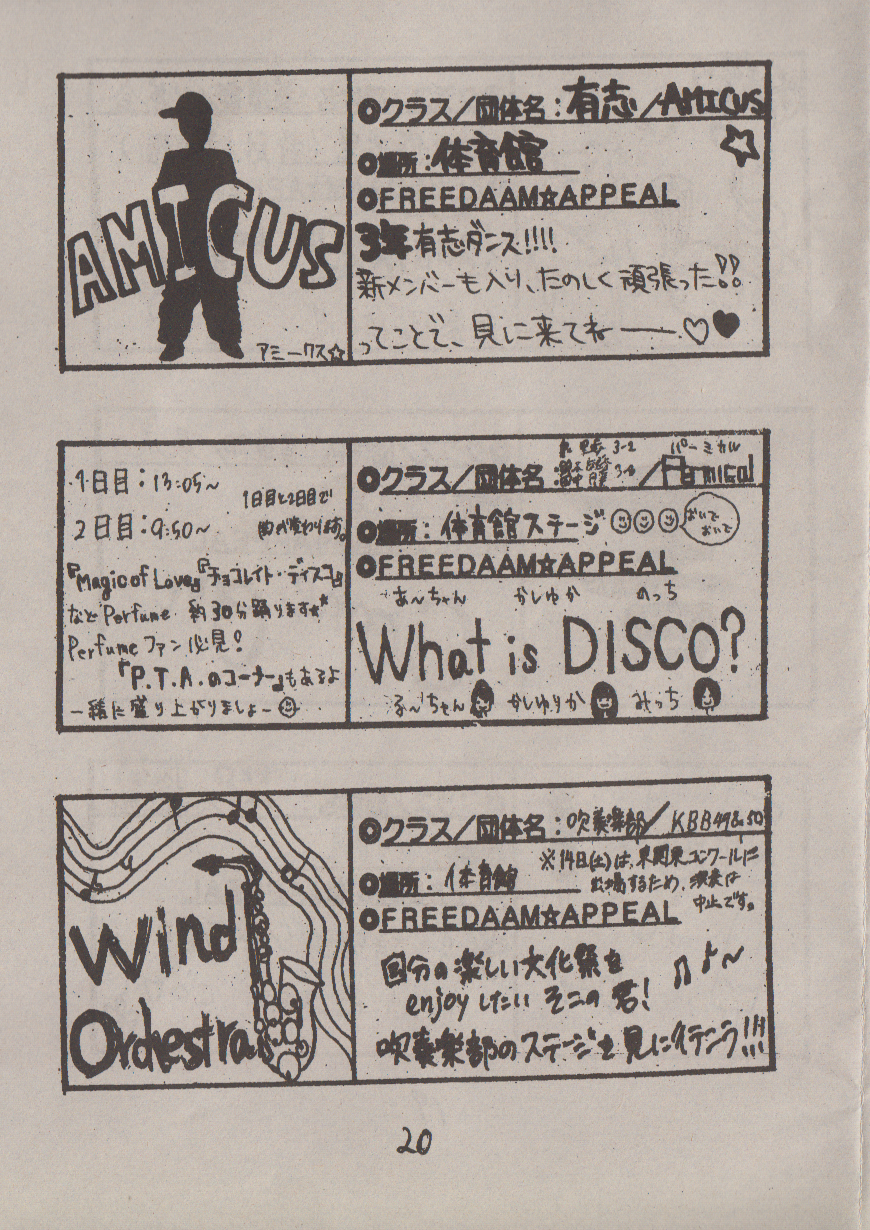 AMICUS
アミークス☆
◎クラス／団体名：有志／AMICUS
◎場所：体育館
◎FREEDAAM☆APPEAL
3年有志ダンス!!!!
新メンバーも入り、たのしく頑張った!!
ってことで、見に来てねー♡♥
1日目：13:05～
1日目と2日目で
2日目：9:50～
曲が変わります。
『Magic of Love』『チョコレイト・ディスコ』
など Perfume 約30分踊ります★*
Perfumeファン必見！
『P.T.A.のコーナー』もあるよ
一緒に盛り上がりましょー☺
3-2
パーミカル
◎クラス／団体名：
◎場所：体育館ステージ☺☺☺
おいで
おいで
◎FREEDAAM☆APPEAL
あ～ちゃん かしゆか のっち
What is DISCO?
る～ちゃん かしゆりか みっち
Wind
Orchestra
◎クラス／団体名：吹奏楽部／KBB49&50
※14日(土)は、東関東コンクールに
◎場所：体育館
出場するため、演奏は
中止です。
◎FREEDAAM☆APPEAL
回分の楽しい文化祭を
enjoyしたい そこの 君！
吹奏楽部のステージを見に行こう!!!
20